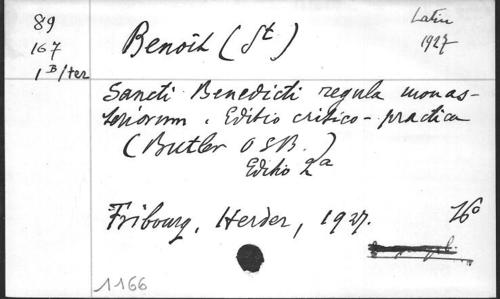 89
167
1 B/ter
Benoît (St)
Latin
1927
Sancti Benedicti regula monas-
teriorum. Editio critico-practica
(Butler OSB.)
Editio 2a
Fribourg, Herder, 1927.
16o
1166